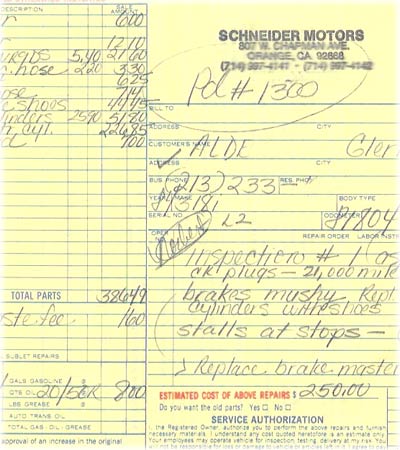 DESCRIPTION SALE AMOUNT
600
1210
5.40 2160
hose 220 330
625
hose 714
shoes 4445
2590 5180
cyl. 22685
700
TOTAL PARTS 38649
fee 160
SUBLET REPAIRS
GALS GASOLINE @
QTS OIL 20/50K 800
LBS GREASE @
AUTO TRANS OIL
TOTAL GAS OIL GREASE
approval of an increase in the original
SCHNEIDER MOTORS
807 W. CHAPMAN AVE.
ORANGE, CA. 92668
(714) 997-4141 - (714) 997-4142
Pd # 1300
BILL TO
ADDRESS CITY
CUSTOMER'S NAME ALDE Glen
ADDRESS CITY
BUS PHONE (213) 233- RES. PH
YEAR MAKE BODY TYPE
SERIAL NO L2 ODOMETER 804
OPER REPAIR ORDER LABOR INSTR
Inspection # 1
ck plugs - 21,000 mile
brakes mushy Repl.
cylinders with shoes
stalls at stops -
Replace brake master
ESTIMATED COST OF ABOVE REPAIRS $ 250.00
Do you want the old parts? Yes No
SERVICE AUTHORIZATION
I, the Registered Owner, authorize you to perform the above repairs and furnish
necessary materials. I understand any cost quoted heretofore is an estimate only
Your employees may operate vehicle for inspection, testing, delivery at my risk. You
will not be responsible for loss or damage to vehicle or articles left in it